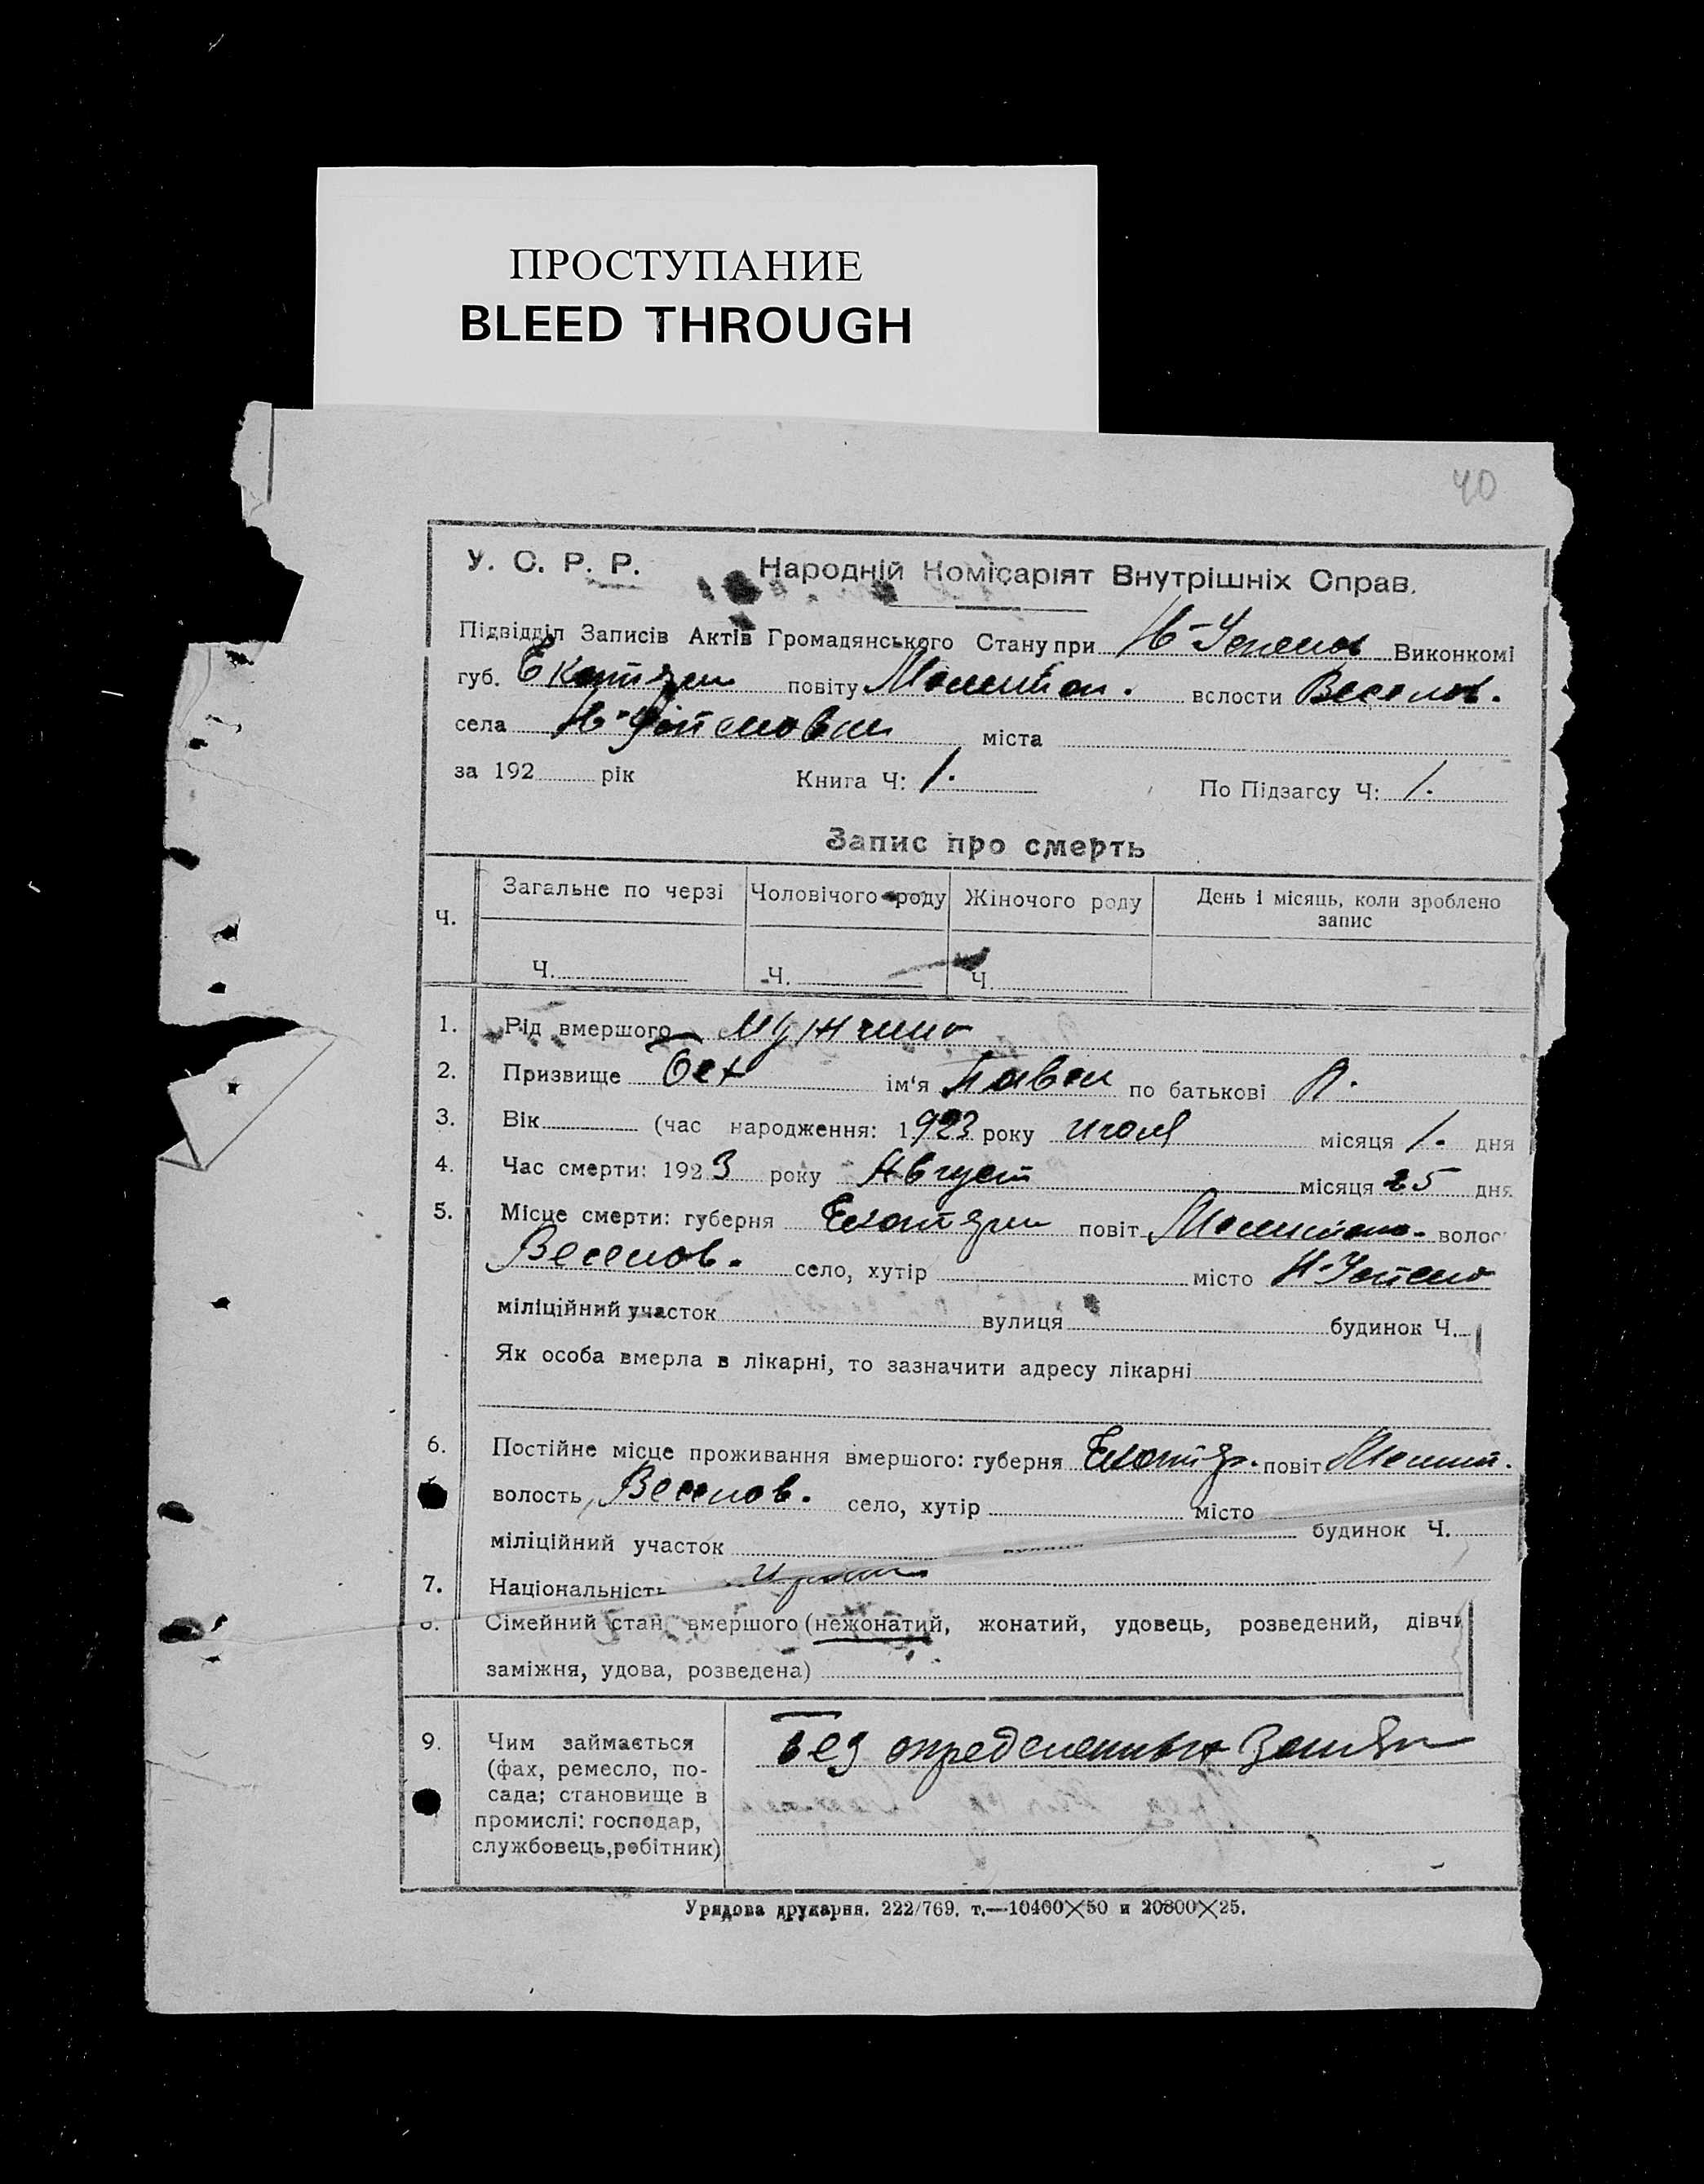 ПРОСТУПАНИЕ
BLEED THROUGH
40
У. С. Р. Р. Народній Комісаріят Внутрішніх Справ.
Підвідділ Записів Актів Громадянського Стану при Виконкомі
губ. повіту вслости Веселов.
села міста
за 192 рік Книга Ч: 1. По Підзагсу Ч: 1.
Запис про смерть
Ч. Загальне по черзі Чоловічого роду Жіночого роду День і місяць, коли зроблено
запис
Ч. Ч. Ч.
1. Рід вмершого
2. Призвище Бех ім'я Павел по батькові П.
3. Вік (час народження: 1923 року июля місяця 1. дня
4. Час смерти: 1923 року Август місяця 25 дня
5. Місце смерти: губерня повіт волос
Веселов. село, хутір місто
міліційний участок вулиця будинок Ч.
Як особа вмерла в лікарні, то зазначити адресу лікарні
6. Постійне місце проживання вмершого: губерня повіт
волость Веселов. село, хутір місто
міліційний участок будинок Ч.
7. Національність
8. Сімейний стан вмершого (нежонатий, жонатий, удовець, розведений, дівчи
заміжня, удова, розведена)
9. Чим займається Без определенных
(фах, ремесло, по-
сада; становище в
промислі: господар,
службовець, робітник)
Урядова друкарня. 222/769. т.—10400×50 и 20800×25.